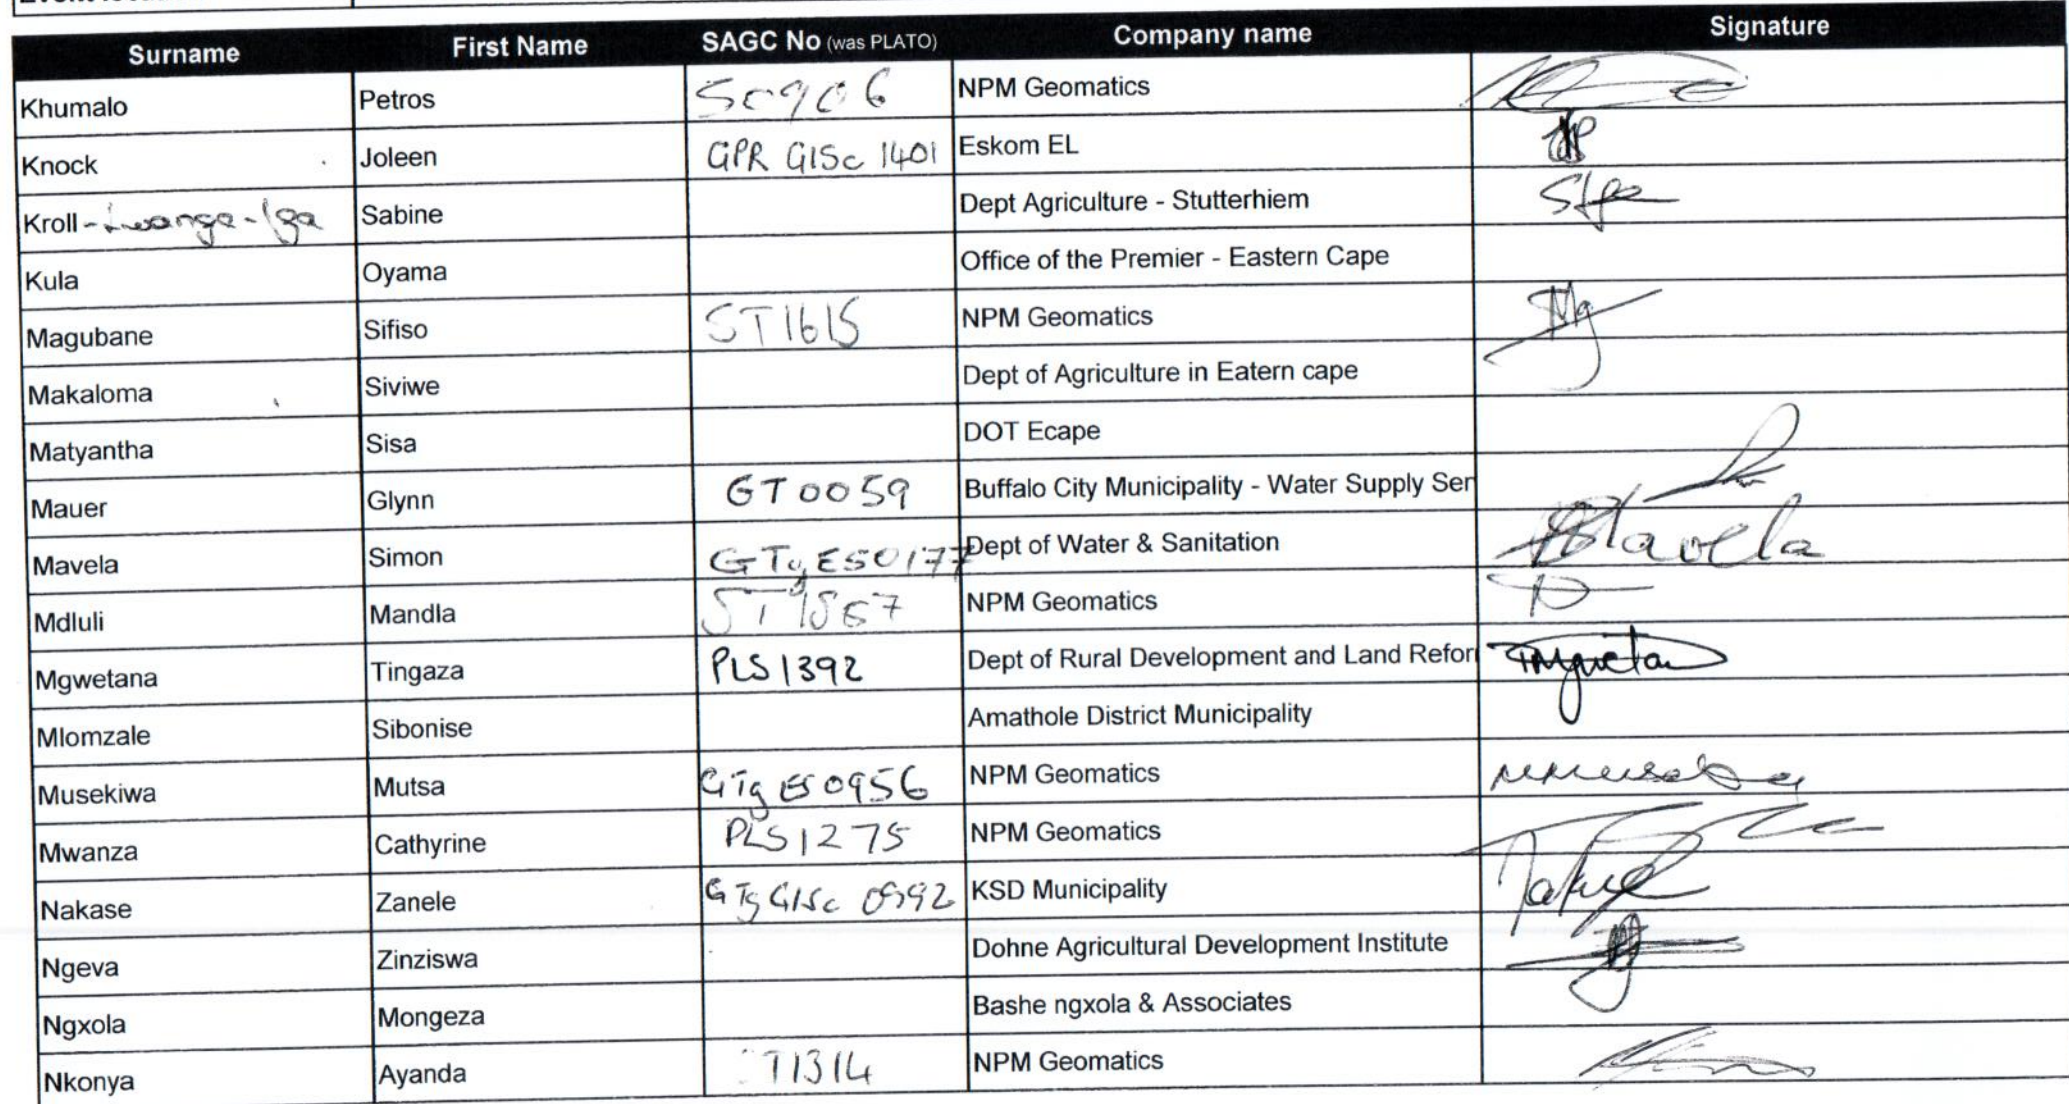 Surname First Name SAGC No (was PLATO) Company name Signature
Khumalo Petros NPM Geomatics
Knock Joleen GPR GISc 1401 Eskom EL
Kroll Sabine Dept Agriculture - Stutterhiem
Kula Oyama Office of the Premier - Eastern Cape
Magubane Sifiso ST1615 NPM Geomatics
Makaloma Siviwe Dept of Agriculture in Eatern cape
Matyantha Sisa DOT Ecape
Mauer Glynn GT0059 Buffalo City Municipality - Water Supply Ser
Mavela Simon GTg ES0177 Dept of Water & Sanitation Mavela
Mdluli Mandla NPM Geomatics
Mgwetana Tingaza PLS1392 Dept of Rural Development and Land Refor
Mlomzale Sibonise Amathole District Municipality
Musekiwa Mutsa GTg ES0956 NPM Geomatics
Mwanza Cathyrine PLS1275 NPM Geomatics
Nakase Zanele GTg GISc KSD Municipality
Ngeva Zinziswa Dohne Agricultural Development Institute
Ngxola Mongeza Bashe ngxola & Associates
Nkonya Ayanda T1314 NPM Geomatics